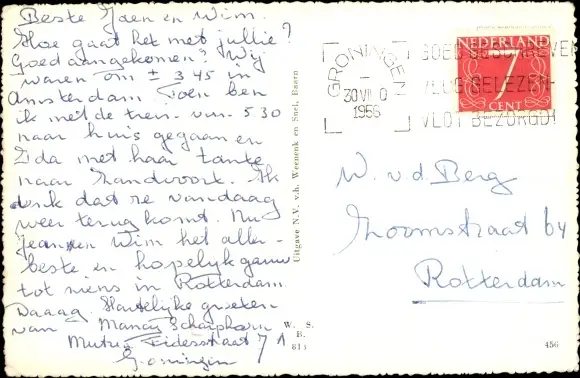 Beste Joen en Wim.
Hoe gaat het met jullie?
Goed aangekomen? Wij
waren om ± 3.45 in
Amsterdam Toen ben
ik met de trein van 5.30
naar huis gegaan en
Zida met haar tante
naar Zandvoort. Ik
denk dat ze vandaag
weer terug komt. Nu
en Wim het aller-
beste en hopelijk gauw
tot ziens in Rotterdam.
Daaag. Hartelijke groeten
van Mancy Scharphorn
Mutua Fidesstraat 7A
Groningen
Uitgave N.V. v.h. Weenenk en Snel, Baarn
W. S.
B.
813
GRONINGEN
30 VII 0
1956
GOED GESCHREVEN
VLUG GELEZEN-
VLOT BEZORGD!
NEDERLAND
7
CENT
W. v.d Berg
Zoomstraat 64
Rotterdam
456